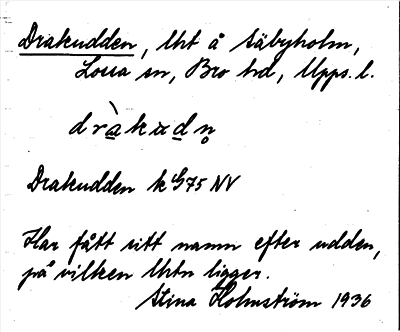 Drakudden, lht å Säbyholm,
Låssa sn, Bro hd, Upps. l.
dràkudn̥
Drakudden k G75 NV
Har fått sitt namn efter udden,
på vilken lhtn ligger.
Stina Holmström 1936